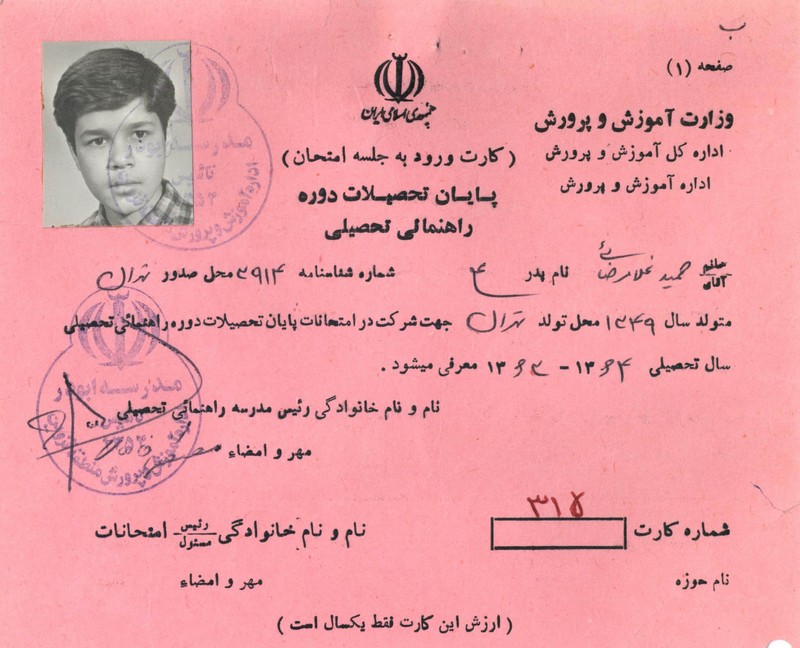 ب
صفحه (۱)
جمهوری اسلامی ایران
وزارت آموزش و پرورش
اداره کل آموزش و پرورش
اداره آموزش و پرورش
(کارت ورود به جلسه امتحان)
پایان تحصیلات دوره
راهنمائی تحصیلی
خانم آقای حمید غلامرضائی نام پدر شماره شناسنامه ۳۹۱۴ محل صدور تهران
متولد سال ۱۳۴۹ محل تولد تهران جهت شرکت در امتحانات پایان تحصیلات دوره راهنمائی تحصیلی
سال تحصیلی ۱۳۶۴ - ۱۳۶۳ معرفی میشود .
نام و نام خانوادگی رئیس مدرسه راهنمائی تحصیلی
مهر و امضاء
مدرسه ابوذر
۳۱۵
شماره کارت
نام و نام خانوادگی رئیس مسئول امتحانات
نام حوزه
مهر و امضاء
(ارزش این کارت فقط یکسال است)